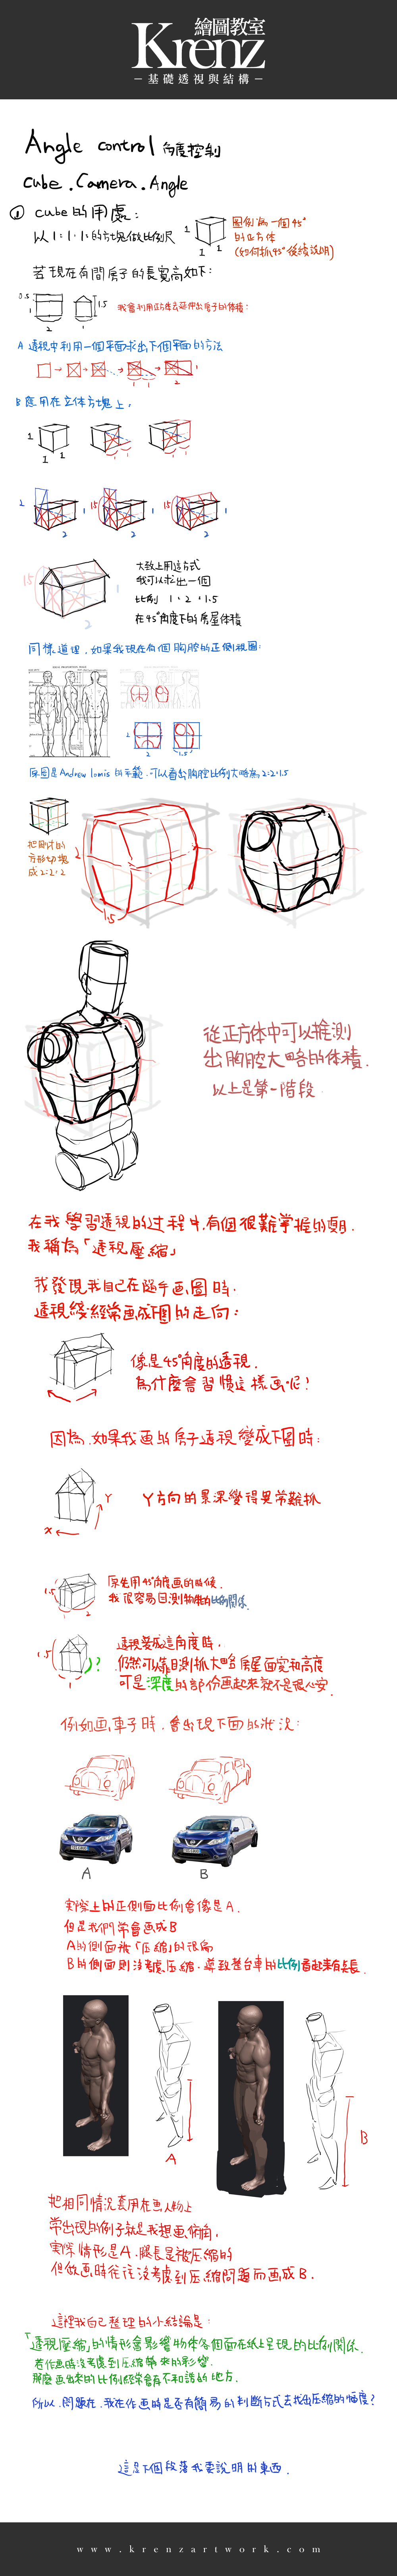 繪圖教室
Krenz
基礎透視與結構
Angle control 角度控制
cube.Camera.Angle
① cube的用處:
以1:1:1的方塊做比例尺
1
1
1
圖例為一個45°
的正方体
(如何抓45°後續說明)
若現在有間房子的長寬高如下:
0.5
1
2
1.5
1
我會利用正方体去延伸出房子的体積:
A 透視中利用一個平面求出下個平面的方法
1
1
2
1
B 應用在立体方塊上,
1
1
1
1
1
1
1
2
1
2
1.5
1
2
1.5
1
2
1.5
1
2
大致上用這方式
我可以求出一個
比例 1:2:1.5
在45°角度下的房屋体積
同樣道理.如果我現在有個胸腔的正側視圖:
2
2
1.5
原圖是Andrew lomis的示範.可以看出胸腔比例大略為2:2:1.5
把固体的
方形切塊
成2:2:2
2
1.5
從正方体中可以推測
出胸腔大略的体積.
以上是第一階段.
在我學習透視的过程中.有個很難掌握的東西.
我稱為「透視壓縮」
我發現我自己在隨手画圖時.
透視線經常画成下圖的走向:
像是45°角度的透視.
為什麼會習慣這樣画呢?
因為.如果我画的房子透視變成下圖時:
Y
X
Y方向的景深變得異常難抓
1.5
1
2
原先用45°角度画的時候.
我很容易目測物体的比例關係.
1.5
1
?
透視變成這角度時,
仍然可以靠目測抓大略房屋面寬和高度
可是深度的部份画起來就不是很心安.
例如画車子時.會出現下面的狀況:
A
B
实際上的正側面比例會像是A.
但是我們常會画成B
A的側面被「压縮」的很扁
B的側面則沒考慮压縮.導致整台車的比例看起來有点長.
A
B
把相同情況套用在画人物上
常出現的例子就是我想画俯角,
实際情形是A.腿長是被压縮的
但作画時往往沒考慮到压縮問題而画成B.
這裡我自己整理的小結論是:
「透視壓縮」的情形會影響物体各個面在紙上呈現的比例關係.
若作画時沒考慮到压縮帶來的影響.
那麼画出來的比例經常會有不和諧的地方.
所以.問題在.我在作画時是否有簡易的判斷方式去找出压縮的幅度?
這是下個段落我要說明的東西.
www.krenzartwork.com